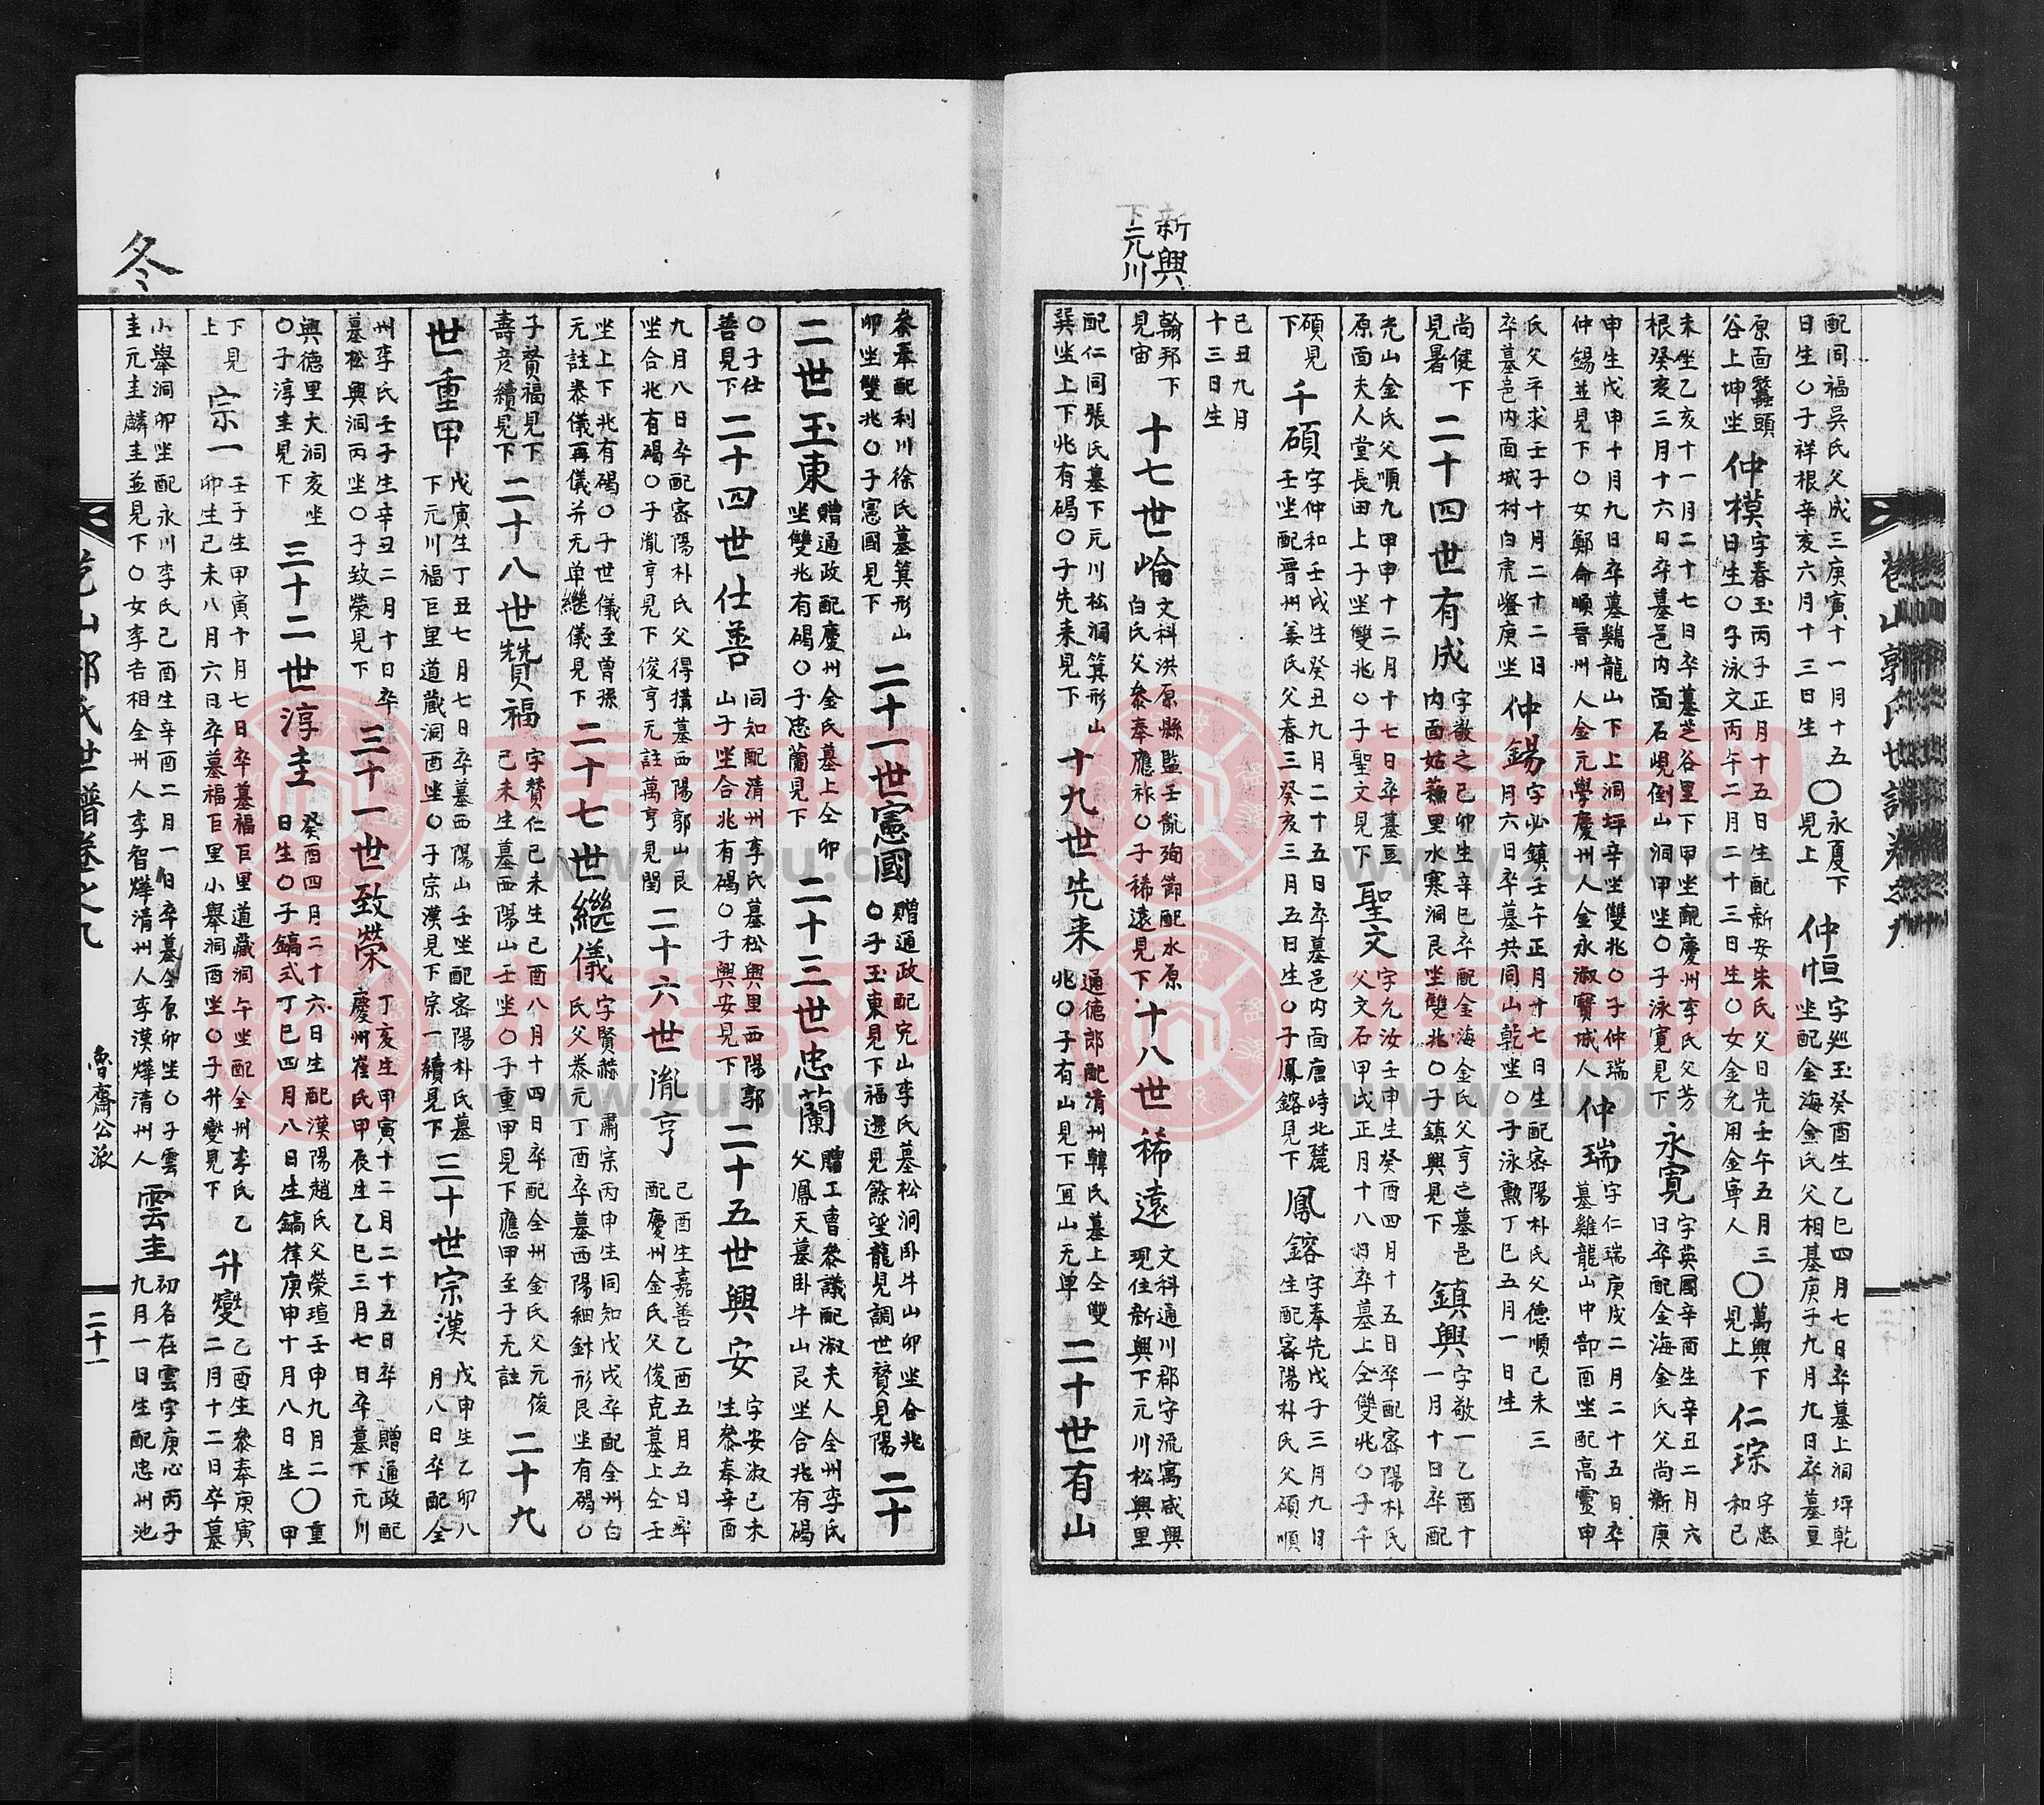 新興
下元川
配同福吳氏父成三庚寅十一月十五
日生〇子祥根辛亥六月十三日生
〇永夏下
見上
仲恒
字巡玉癸酉生乙巳四月七日卒墓上洞坪乾
坐配金海金氏父相基庚子九月九日卒墓豆
原面蠶頭
谷上坤坐
仲模
字春玉丙子正月十五日生配新安朱氏父日先壬午五月三
日生〇子泳文丙午二月二十三日生〇女金允用金寧人
〇萬興下
見上
仁琮
字忠
和己
未坐乙亥十一月二十七日卒墓芝谷里下甲坐配慶州李氏父芳
根癸亥三月十六日卒墓邑内面石峴倒山洞甲坐〇子泳寬見下
永寬
字英國辛酉生辛丑二月六
日卒配金海金氏父尚新庚
申生戊申十月九日卒墓鷄龍山下上洞坪辛坐雙兆〇子仲瑞
仲錫並見下〇女鄭命順晋州人金元學慶州人金永淑寶城人
仲瑞
字仁瑞庚戌二月二十五日卒
墓雞龍山中部酉坐配高靈申
氏父平求壬子十月二十二日
卒墓邑内面城村白虎嶝庚坐
仲錫
字必鎮壬午正月廿七日生配密陽朴氏父德順己未三
月六日卒墓共同山乾坐〇子泳勲丁巳五月一日生
尚健下
見暑
二十四世有成
字敬之己卯生辛巳卒配金海金氏父亨之墓邑
内面姑蘓里水寒洞艮坐雙兆〇子鎮興見下
鎮興
字敬一乙酉十
一月十日卒配
光山金氏父順九甲申十二月十七日卒墓豆
原面夫人堂長田上子坐雙兆〇子聖文見下
聖文
字允汝壬申生癸酉四月十五日卒配密陽朴氏
父文石甲戌正月十八日卒墓上仝雙兆〇子千
碩見
下
千碩
字仲和壬戌生癸丑九月二十五日卒墓邑内面唐峙北麓
壬坐配晋州姜氏父春三癸亥三月五日生〇子鳳鎔見下
鳳鎔
字奉先戊子三月九日
生配密陽朴氏父碩順
己丑九月
十三日生
翰邦下
見宙
十七世崘
文科洪原縣監壬亂殉節配水原
白氏父叅奉應祚〇子稀遠見下
十八世稀遠
文科通川郡守流寓咸興
現住新興下元川松興里
配仁同張氏墓下元川松洞箕形山
巽坐上下兆有碣〇子先来見下
十九世先来
通德郎配清州韓氏墓上仝雙
兆〇子有山見下冝山无單
二十世有山
菀山郭氏世譜卷之九
冬
叅奉配利川徐氏墓箕形山
卯坐雙兆〇子憲國見下
二十一世憲國
贈通政配完山李氏墓松洞卧牛山卯坐合兆
〇子玉東見下福遜見餘望龍見調世贇見陽
二十
二世玉東
贈通政配慶州金氏墓上仝卯
坐雙兆有碣〇子忠蘭見下
二十三世忠蘭
贈工曹叅議配淑夫人全州李氏
父鳳天墓卧牛山艮坐合兆有碣
〇子仕
善見下
二十四世仕善
同知配清州李氏墓松興里西陽郭
山子坐合兆有碣〇子興安見下
二十五世興安
字安淑己未
生叅奉辛酉
九月八日卒配密陽朴氏父得搆墓西陽郭山艮
坐合兆有碣〇子胤亨見下俊亨无註萬亨見閏
二十六世胤亨
己酉生嘉善乙酉五月五日卒
配慶州金氏父俊克墓上仝壬
坐上下兆有碣〇子世儀至曾孫
无註泰儀再儀并无单繼儀見下
二十七世繼儀
字賢赫肅宗丙申生同知戊戌卒配全州白
氏父泰元丁酉卒墓西陽細鉢形艮坐有碣〇
子贊福見下
壽彦續見下
二十八世贊福
字贊仁己未生己酉八月十四日卒配全州金氏父元俊
己未生墓西陽山壬坐〇子重甲見下應甲至子无註
二十九
世重甲
戊寅生丁丑七月七日卒墓西陽山壬坐配密陽朴氏墓
下元川福巨里道蔵洞酉坐〇子宗漢見下宗一續見下
三十世宗漢
戊申生乙卯八
月八日卒配全
州李氏壬子生辛丑二月十日卒
墓松興洞丙坐〇子致榮見下
三十一世致榮
丁亥生甲寅十二月二十五日卒贈通政配
慶州崔氏甲辰生乙巳三月七日卒墓下元川
興德里大洞亥坐
〇子淳圭見下
三十二世淳圭
癸酉四月二十六日生配漢陽趙氏父榮瑄壬申九月二
日生〇子鎬式丁巳四月八日生鎬律庚申十月八日生
〇重甲
下見
上
宗一
壬子生甲寅十月七日卒墓福巨里道蔵洞午坐配全州李氏乙
卯生己未八月六日卒墓福巨里小舉洞酉坐〇子升燮見下
升燮
乙酉生叅奉庚寅
二月十二日卒墓
小舉洞卯坐配永川李氏己酉生辛酉二月一日卒墓仝原卯坐〇子雲
圭元圭麟圭並見下〇女李吉相全州人李智燁清州人李漢燁清州人
雲圭
初名在雲字庚心丙子
九月一日生配忠州池
菀山郭氏世譜卷之九
魯齋公派
二十一
族譜网
www.zupu.cn